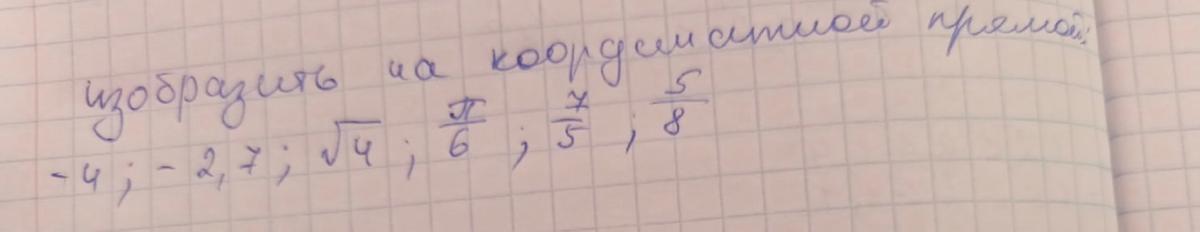 изобразить на координатной прямой:
-4; -2,7; √4; π/6; 7/5; 5/8